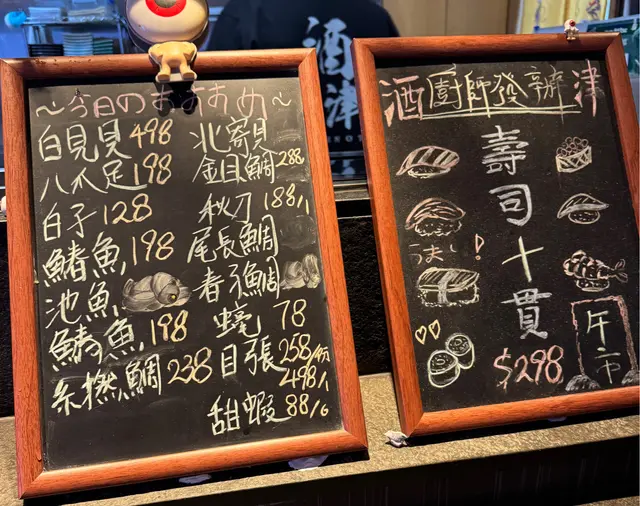 ～今日のおすすめ～
白見貝 498
八爪足 198
白子 128
鰆魚 198
池魚
鯖魚 198
糸撚鯛 238
北寄貝
金目鯛 288
秋刀 188/1
尾長鯛
春子鯛
蠔 78
目張 258/份
498/1
甜蝦 88/6
酒廚師發辦津
壽司十貫
うまい！
$298
午市
酒津